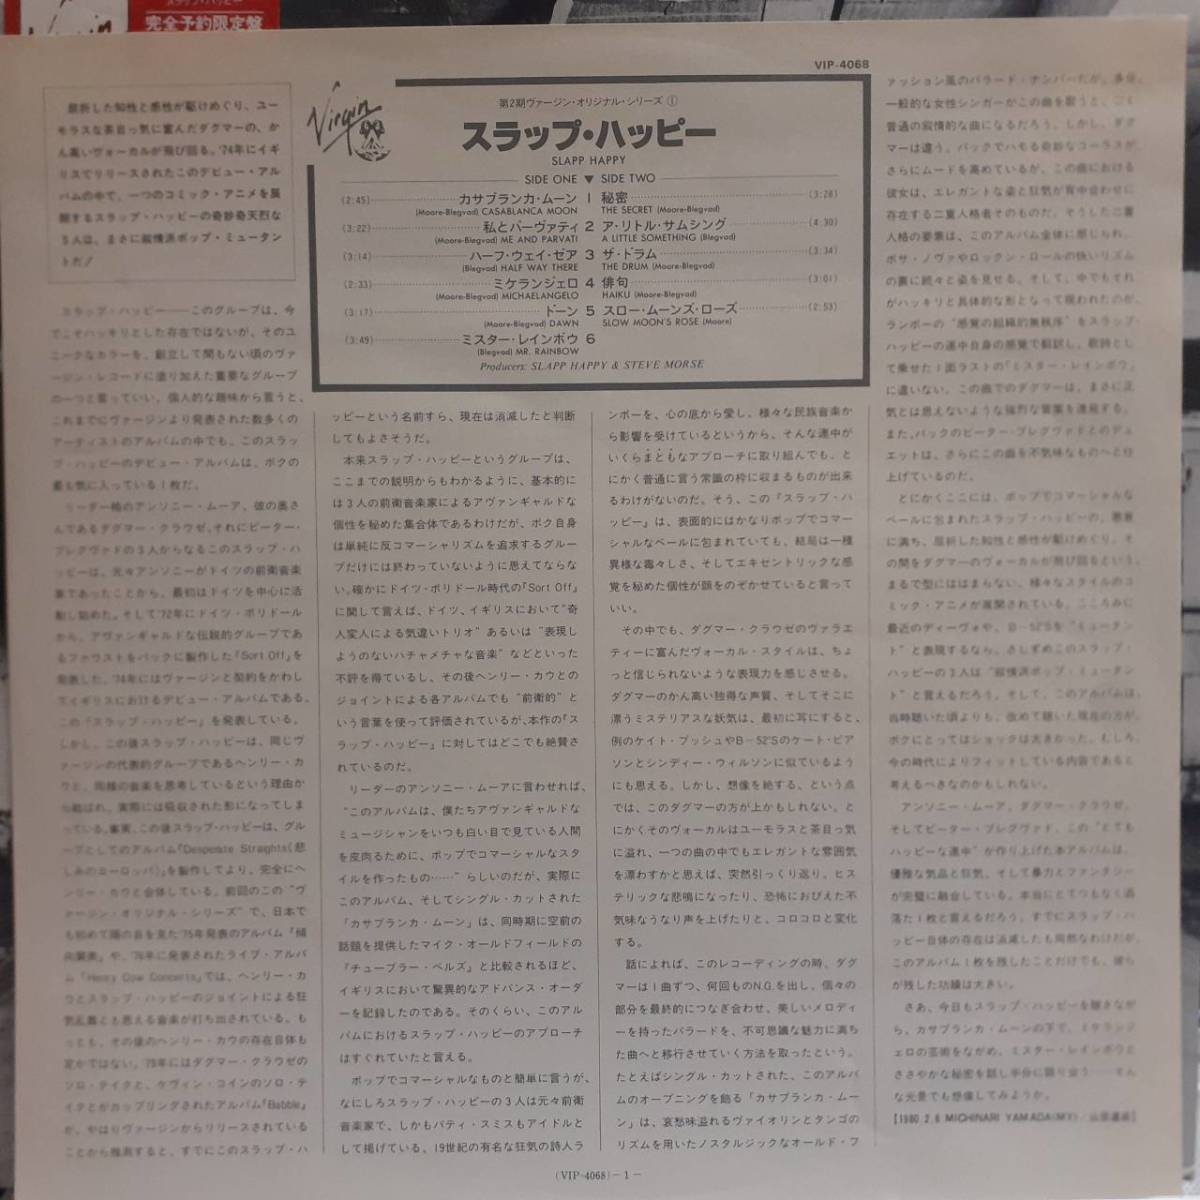 スラップ・ハッピー
完全予約限定盤
VIP-4068
Virgin
第2期ヴァージン・オリジナル・シリーズ①
スラップ・ハッピー
SLAPP HAPPY
SIDE ONE ▼ SIDE TWO
(2:45) カサブランカ・ムーン 1 秘密 (3:28)
(Moore-Blegvad) CASABLANCA MOON THE SECRET (Moore-Blegvad)
(3:22) 私とパーヴァティ 2 ア・リトル・サムシング (4:30)
(Moore-Blegvad) ME AND PARVATI A LITTLE SOMETHING (Blegvad)
(3:14) ハーフ・ウェイ・ゼア 3 ザ・ドラム (3:34)
(Blegvad) HALF WAY THERE THE DRUM (Moore-Blegvad)
(2:33) ミケランジェロ 4 俳句 (3:01)
(Moore-Blegvad) MICHAELANGELO HAIKU (Moore-Blegvad)
(3:17) ドーン 5 スロー・ムーンズ・ローズ (2:53)
(Moore-Blegvad) DAWN SLOW MOON'S ROSE (Moore)
(3:49) ミスター・レインボウ 6
(Blegvad) MR. RAINBOW
Producers: SLAPP HAPPY & STEVE MORSE
屈折した知性と感性が駆けめぐり、ユー
モラスな茶目っ気に富んだダグマーの、か
ん高いヴォーカルが飛び回る。'74年にイギ
リスでリリースされたこのデビュー・アル
バムの中で、一つのコミック・アニメを展
開するスラップ・ハッピーの奇妙奇天烈な
3人は、まさに叙情派ポップ・ミュータン
トだ!
スラップ・ハッピー——このグループは、今
でこそハッキリとした存在ではないが、そのユ
ニークなカラーを、創立して間もない頃のヴァ
ージン・レコードに塗り加えた重要なグループ
の一つと言っていい。個人的な趣味から言うと、
これまでにヴァージンより発表された数多くの
アーティストのアルバムの中でも、このスラッ
プ・ハッピーのデビュー・アルバムは、ボクの
最も気に入っている1枚だ。
リーダー格のアンソニー・ムーア、彼の奥さ
んであるダグマー・クラウゼ、それにピーター・
ブレグヴァドの3人からなるこのスラップ・ハ
ッピーは、元々アンソニーがドイツの前衛音楽
家であったことから、最初はドイツを中心に活
動し始めた。そして'72年にドイツ・ポリドール
から、アヴァンギャルドな伝説的グループであ
るファウストをバックに製作した「Sort Off」を
発表した。'74年にはヴァージンと契約をかわし
てイギリスにおけるデビュー・アルバムである、
この『スラップ・ハッピー』を発表している。
しかし、この後スラップ・ハッピーは、同じヴ
ァージンの代表的グループであるヘンリー・カ
ウと、同様の音楽を思考しているという理由か
ら結ばれ、実際には吸収された形になってしま
っている。事実、この後スラップ・ハッピーは、グル
ープとしてのアルバム『Desperate Straights(悲
しみのヨーロッパ)』を製作してより、完全にヘ
ンリー・カウと合体している。前回のこの“ヴ
ァージン・オリジナル・シリーズ”で、日本で
も初めて陽の目を見た'75年発表のアルバム『傾
向賛美』や、'76年に発表されたライブ・アルバ
ム『Henry Cow Concerts』では、ヘンリー・カ
ウとスラップ・ハッピーのジョイントによる狂
気乱舞とも思える音楽が打ち出されている。も
っとも、その後のヘンリー・カウの存在自体も
定かではない。'79年にはダグマー・クラウゼの
ソロ・テイクと、ケヴィン・コインのソロ・テ
イクとがカップリングされたアルバム『Babble』
が、やはりヴァージンからリリースされている
ことから推測すると、すでにこのスラップ・ハ
ッピーという名前すら、現在は消滅したと判断
してもよさそうだ。
本来スラップ・ハッピーというグループは、
ここまでの説明からもわかるように、基本的に
は3人の前衛音楽家によるアヴァンギャルドな
個性を秘めた集合体であるわけだが、ボク自身
は単純に反コマーシャリズムを追求するグルー
プだけには終わっていないように思えてならな
い。確かにドイツ・ポリドール時代の「Sort Off」
に関して言えば、ドイツ、イギリスにおいて“奇
人変人による気違いトリオ”あるいは“表現し
ようのないハチャメチャな音楽”などといった
不評を得ているし、その後ヘンリー・カウとの
ジョイントによる各アルバムでも“前衛的”と
いう言葉を使って評価されているが、本作の『ス
ラップ・ハッピー』に対してはどこでも絶賛さ
れているのだ。
リーダーのアンソニー・ムーアに言わせれば、
“このアルバムは、僕たちアヴァンギャルドな
ミュージシャンをいつも白い目で見ている人間
を皮肉るために、ポップでコマーシャルなスタ
イルを作ったもの……”らしいのだが、実際に
このアルバム、そしてシングル・カットされた
「カサブランカ・ムーン」は、同時期に空前の
話題を提供したマイク・オールドフィールドの
『チューブラー・ベルズ』と比較されるほど、
イギリスにおいて驚異的なアドバンス・オーダ
ーを記録したのである。そのくらい、このアル
バムにおけるスラップ・ハッピーのアプローチ
はすぐれていたと言える。
ポップでコマーシャルなものと簡単に言うが、
なにしろスラップ・ハッピーの3人は元々前衛
音楽家で、しかもパティ・スミスもアイドルと
して掲げている、19世紀の有名な狂気の詩人ラ
ンボーを、心の底から愛し、様々な民族音楽か
ら影響を受けているというから、そんな連中が
いくらまともなアプローチに取り組んでも、と
にかく普通に言う常識の枠に収まるものが出来
るわけがないのだ。そう、この『スラップ・ハ
ッピー』は、表面的にはかなりポップでコマー
シャルなベールに包まれていても、結局は一種
異様な毒々しさ、そしてエキセントリックな感
覚を秘めた個性が顔をのぞかせていると言って
いい。
その中でも、ダグマー・クラウゼのヴァラエ
ティーに富んだヴォーカル・スタイルは、ちょ
っと信じられないような表現力を感じさせる。
ダグマーのかん高い独得な声質、そしてそこに
漂うミステリアスな妖気は、最初に耳にすると、
例のケイト・ブッシュやB-52'Sのケート・ピア
ソンとシンディー・ウィルソンに似ているように
も思える。しかし、想像を絶する、という点
では、このダグマーの方が上かもしれない。と
にかくそのヴォーカルはユーモラスと茶目っ気
に溢れ、一つの曲の中でもエレガントな雰囲気
を漂わすかと思えば、突然引っくり返り、ヒス
テリックな悲鳴になったり、恐怖におびえた不
気味なうなり声を上げたりと、コロコロと変化
する。
話によれば、このレコーディングの時、ダグ
マーは1曲ずつ、何回ものN.G.を出し、個々の
部分を最終的につなぎ合わせ、美しいメロディ
ーを持ったバラードを、不可思議な魅力に満ち
た曲へと移行させていく方法を取ったという。
たとえばシングル・カットされた、このアルバ
ムのオープニングを飾る「カサブランカ・ムー
ン」は、哀愁味溢れるヴァイオリンとタンゴの
リズムを用いたノスタルジックなオールド・フ
ァッション風のバラード・ナンバーだが、多分、
一般的な女性シンガーがこの曲を歌うと、ごく
普通の叙情的な曲になるだろう。しかし、ダグ
マーは違う。バックでハモる奇妙なコーラスが、
さらにムードを高めているが、この曲における
彼女は、エレガントな姿と狂気が背中合わせに
存在する二重人格者そのものだ。そうした二重
人格の要素は、このアルバム全体に感じられ、
ボサ・ノヴァやロックン・ロールの快いリズム
の裏に続々と姿を見せる。そして、中でもそれ
がハッキリと具体的な形となって現われたのが、
ランボーの“感覚の組織的無秩序”をスラップ・
ハッピーの連中自身の感覚で翻訳し、歌詞とし
て乗せた1面ラストの「ミスター・レインボウ」
に違いない。この曲でのダグマーは、まさに正
気とは思えないような強烈な言葉を連発する。
また、バックのピーター・ブレグヴァドとのデュ
エットは、さらにこの曲を不気味なものへと仕
上げているのだ。
とにかくここには、ポップでコマーシャルな
ベールに包まれたスラップ・ハッピーの、悪意
に満ち、屈折した知性と感性が駆けめぐり、そ
の間をダグマーのヴォーカルが飛び回るという、
まるで型にははまらない、様々なスタイルのコ
ミック・アニメが展開されている。こころみに
最近のディーヴォや、B-52'Sを“ミュータン
ト”と表現するなら、さしずめこのスラップ・
ハッピーの3人は“叙情派ポップ・ミュータン
ト”と言えるだろう。そして、このアルバムは、
当時聴いた頃よりも、改めて聴いた現在の方が、
ボクにとってはショックは大きかった。むしろ、
今の時代によりフィットしている内容であると
考えるべきなのかもしれない。
アンソニー・ムーア、ダグマー・クラウゼ、
そしてピーター・ブレグヴァド、この“とても
ハッピーな連中”が作り上げた本アルバムは、
優雅な気品と狂気、そして暴力とファンタジー
が完璧に融合している。本当にとてつもなく洒
落た1枚と言えるだろう。すでにスラップ・ハ
ッピー自体の存在は消滅したも同然なわけだが、
このアルバム1枚を残したことだけでも、彼ら
が残した功績は大きい。
さあ、今日もスラップ・ハッピーを聴きなが
ら、カサブランカ・ムーンの下で、ミケランジ
ェロの芸術をながめ、ミスター・レインボウと
ささやかな秘密を話し半分に語り合う……そん
な光景でも想像してみようか。
【1980.2.6 MICHINARI YAMADA(MY)/山田道成】
(VIP-4068)-1-